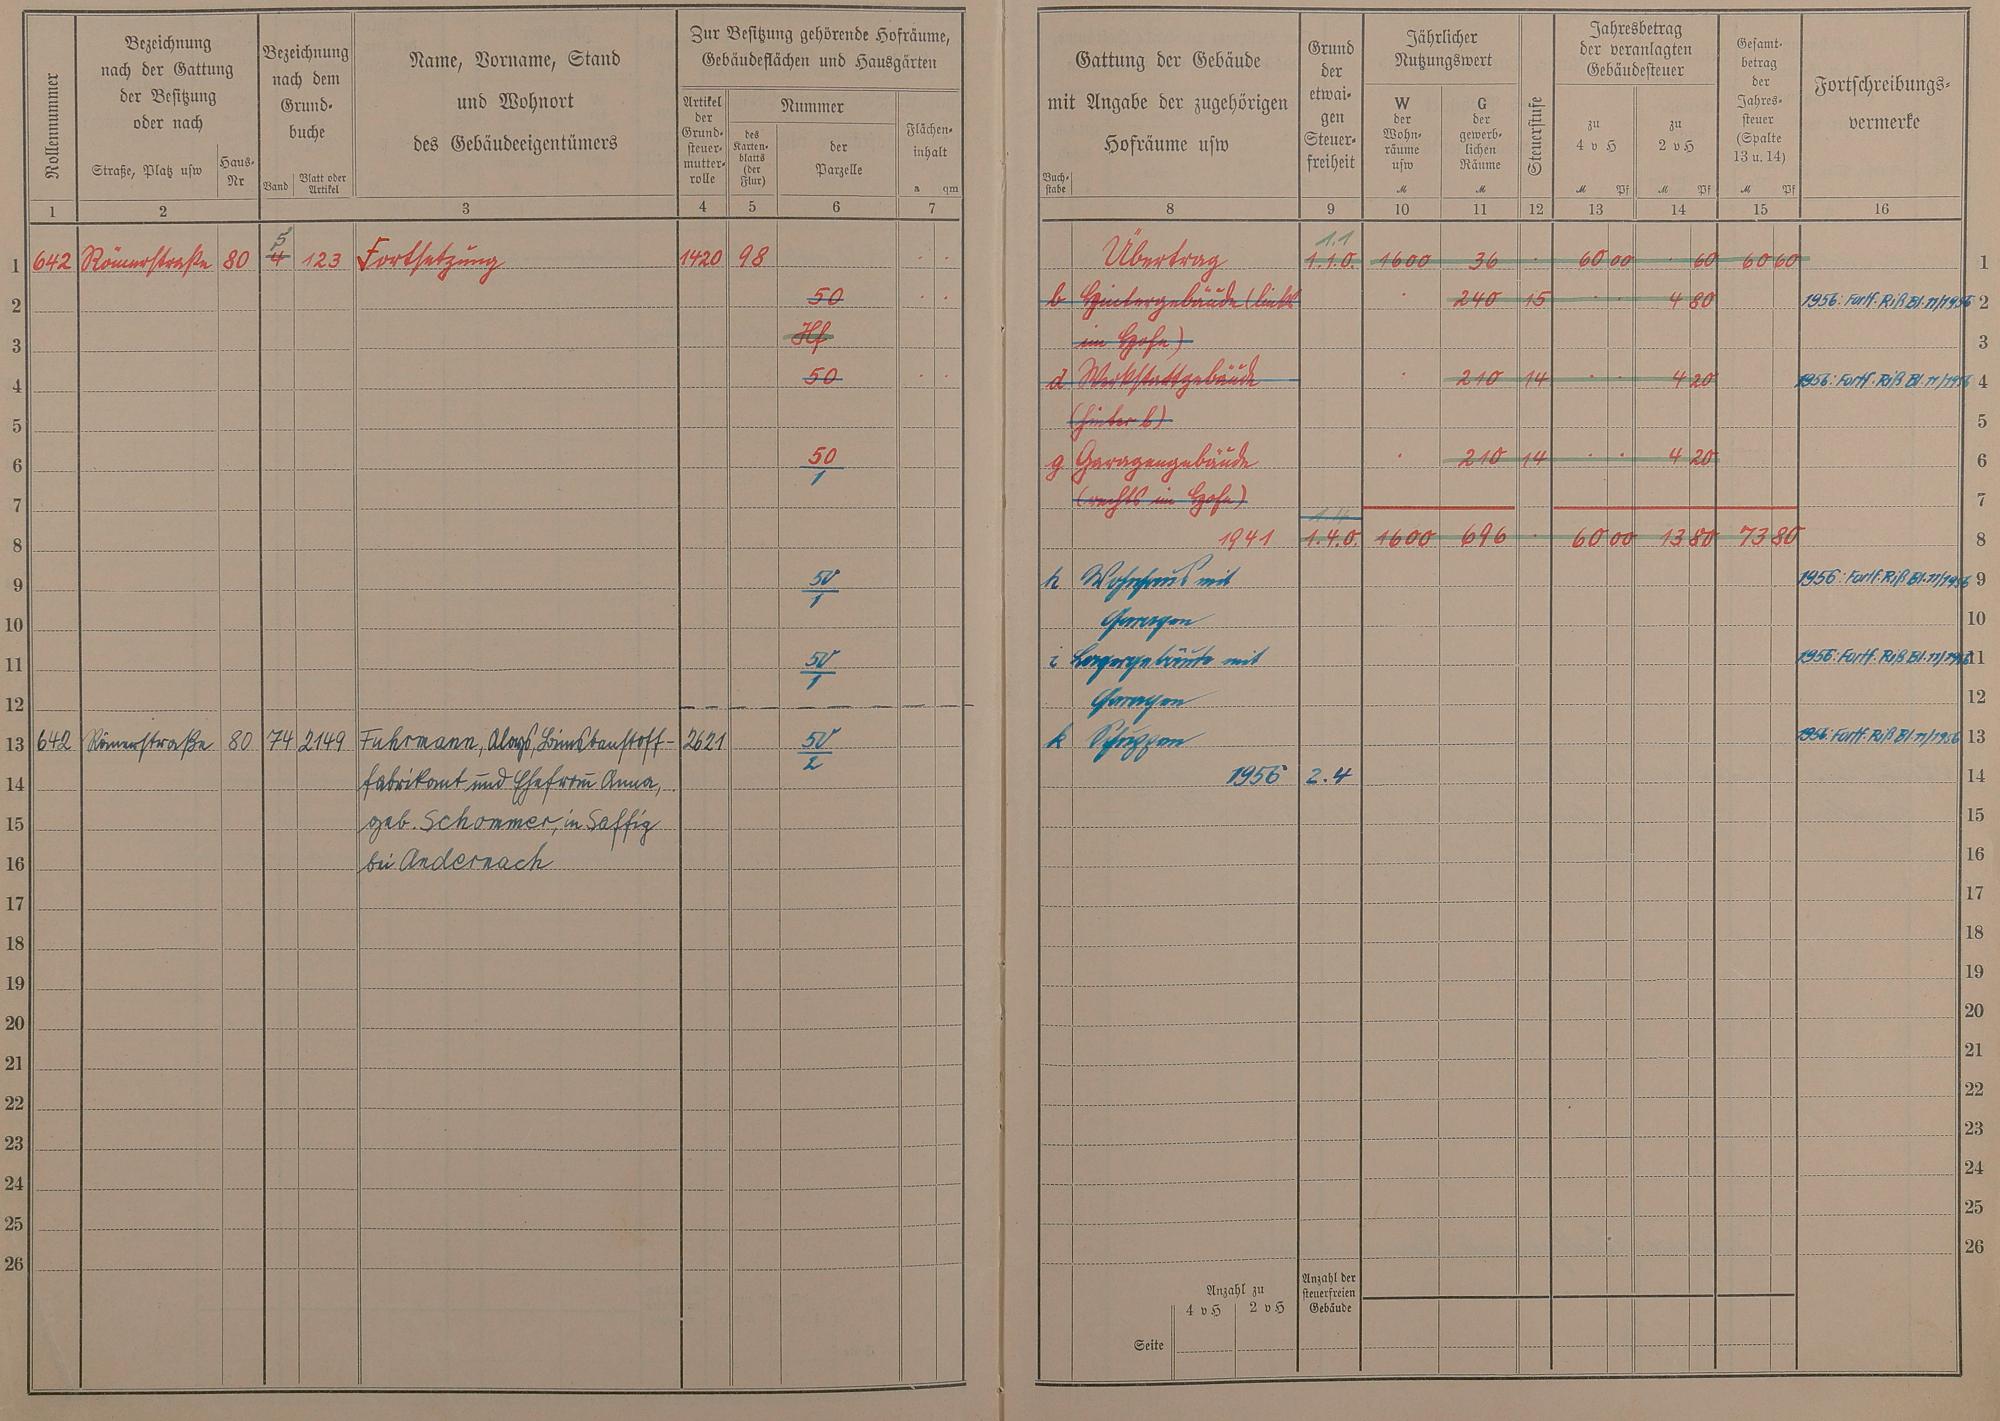 Rollennummer
Bezeichnung
nach der Gattung
der Besitzung
oder nach
Straße, Platz usw
Haus-
Nr
Bezeichnung
nach dem
Grund-
buche
Band
Blatt oder
Artikel
Name, Vorname, Stand
und Wohnort
des Gebäudeeigentümers
Zur Besitzung gehörende Hofräume,
Gebäudeflächen und Hausgärten
Artikel
der
Grund-
steuer-
mutter-
rolle
Nummer
des
Karten-
blatts
(der
Flur)
der
Parzelle
Flächen-
inhalt
a qm
1 2 3 4 5 6 7
1 642 Römerstraße 80 5 4 123 Fortsetzung 1420 98
2 50
3 Hf
4 50
5
6 50/1
7
8
9 50/1
10
11 50/1
12
13 642 Römerstraße 80 74 2149 Fuhrmann, Aloys, Bimsbaustoff- 2621 50/2
14 fabrikant und Ehefrau Anna,
15 geb. Schommer, in Saffig
16 bei Andernach
17
18
19
20
21
22
23
24
25
26
Gattung der Gebäude
mit Angabe der zugehörigen
Hofräume usw
Buch-
stabe
Grund
der
etwai-
gen
Steuer-
freiheit
Jährlicher
Nutzungswert
W
der
Wohn-
räume
usw
M
G
der
gewerb-
lichen
Räume
M
Steuerstufe
Jahresbetrag
der veranlagten
Gebäudesteuer
zu
4 v H
M Pf
zu
2 v H
M Pf
Gesamt-
betrag
der
Jahres-
steuer
(Spalte
13 u. 14)
M Pf
Fortschreibungs-
vermerke
8 9 10 11 12 13 14 15 16
1.1
Übertrag 1.1.0. 1600 36 · 60 00 · 60 60 60 1
b Hintergebäude (links · 240 15 · · 4 80 1956: Fortf. Riß Bl. 11/1956 2
im Hofe) 3
d Werkstattgebäude · 210 14 · · 4 20 1956: Fortf. Riß Bl. 11/1956 4
(hinter b) 5
g Garagengebäude · 210 14 · · 4 20 6
(rechts im Hofe) 7
1941 1.4.0. 1600 696 · 60 00 13 80 73 80 8
h Wohnhaus mit 1956: Fortf. Riß Bl. 11/1956 9
Garagen 10
i Lagergebäude mit 1956: Fortf. Riß Bl. 11/1956 11
Garagen 12
k Schuppen 1956: Fortf. Riß Bl. 11/1956 13
1956 2.4 14
15
16
17
18
19
20
21
22
23
24
25
26
Anzahl zu
4 v H 2 v H
Anzahl der
steuerfreien
Gebäude
Seite